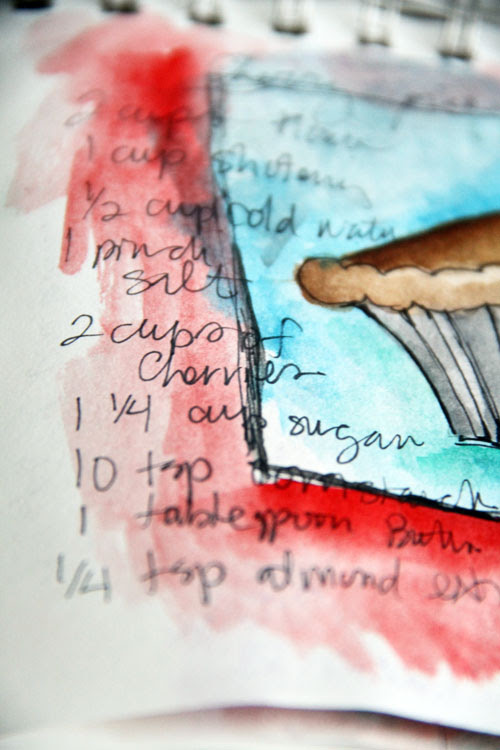 2 cups flour
1 cup shortening
1/2 cup cold water
1 pinch
salt
2 cups of
Cherries
1 1/4 cup sugar
10 tsp cornstarch
1 tablespoon Butter
1/4 tsp almond ext